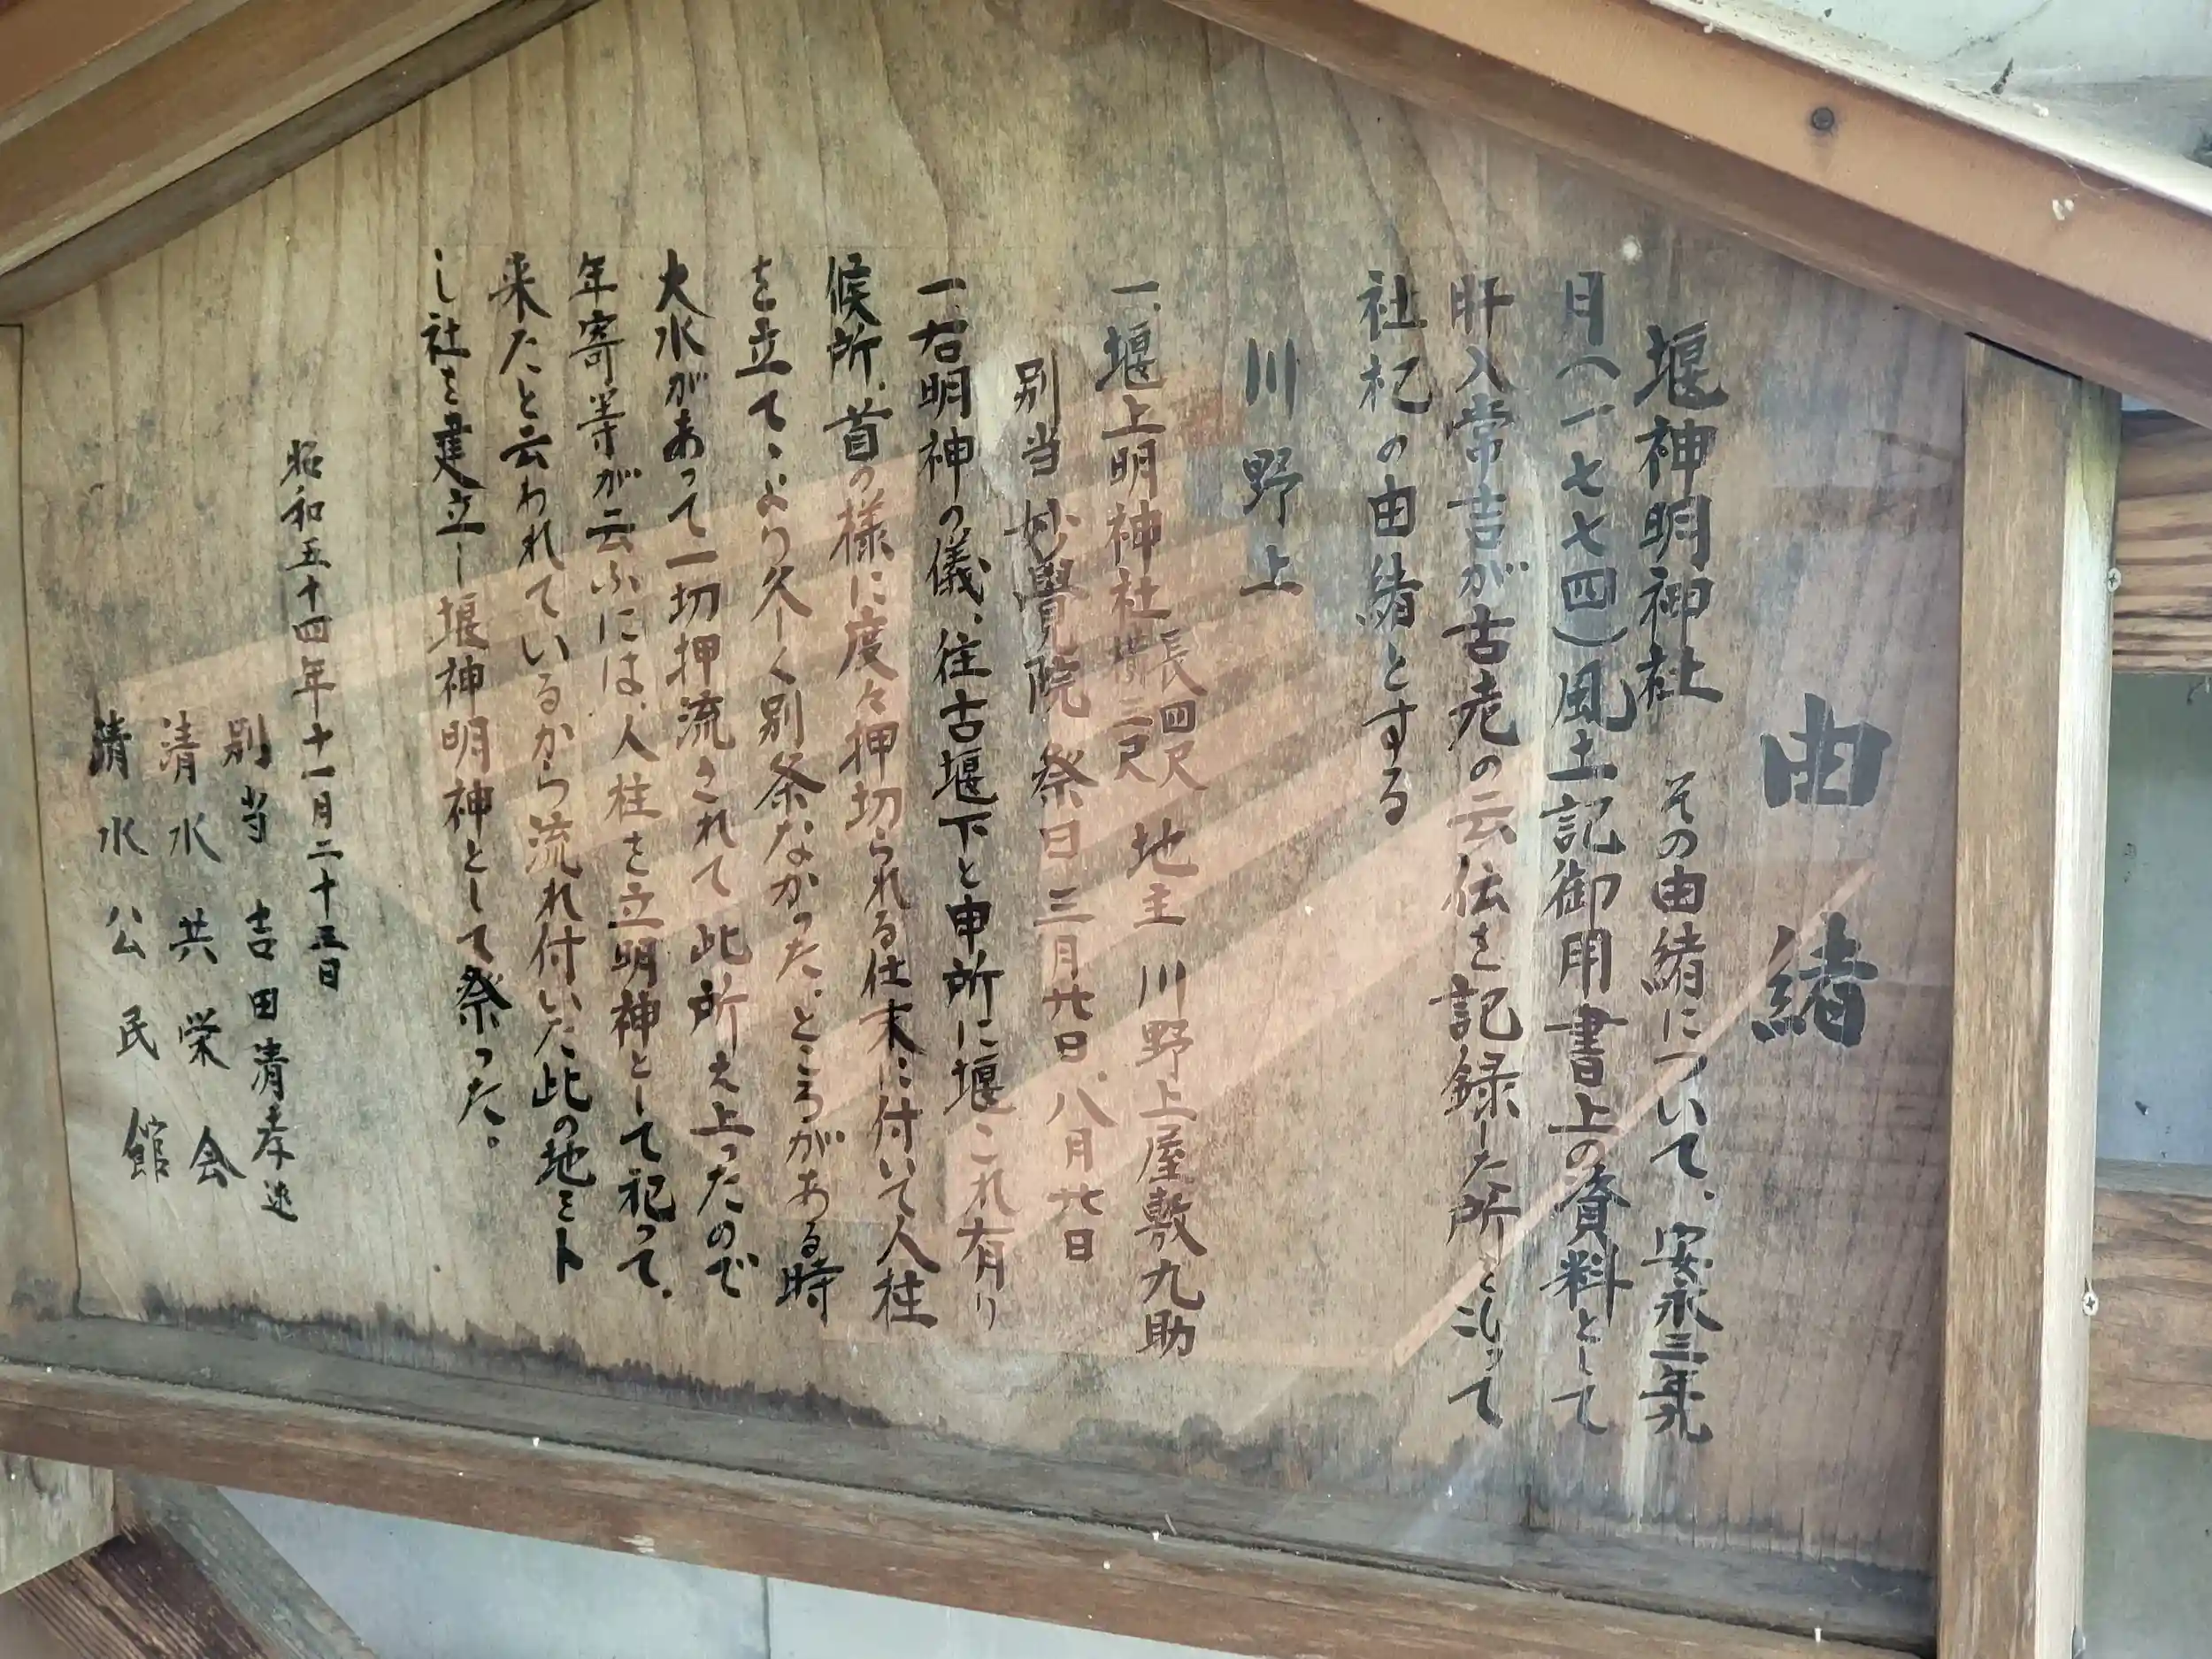 由緒
堰神明神社 その由緒について、安永三年九
月(一七七四)風土記御用書上の資料として
肝入常吉が古老の云伝を記録した所に沿って
社祀の由緒とする
川野上
一、堰上明神社 長四尺 横三尺 地主 川野上屋敷九助
別当 妙覺院 祭日 三月廿日、八月廿日
一、右明神の儀、往古堰下と申所に堰これ有り
候所、首の様に度々押切られる仕末に付いて人柱
を立て、より久しく別条なかった。ところがある時
大水があって一切押流されて此所え上ったので
年寄等が云ふには、人柱を立明神として祀って、
来たと云われているから流れ付いた此の地ミト
し社を建立し堰神明神として祭った。
昭和五十四年十一月二十三日
別当 吉田清孝
清水共栄会
清水公民館